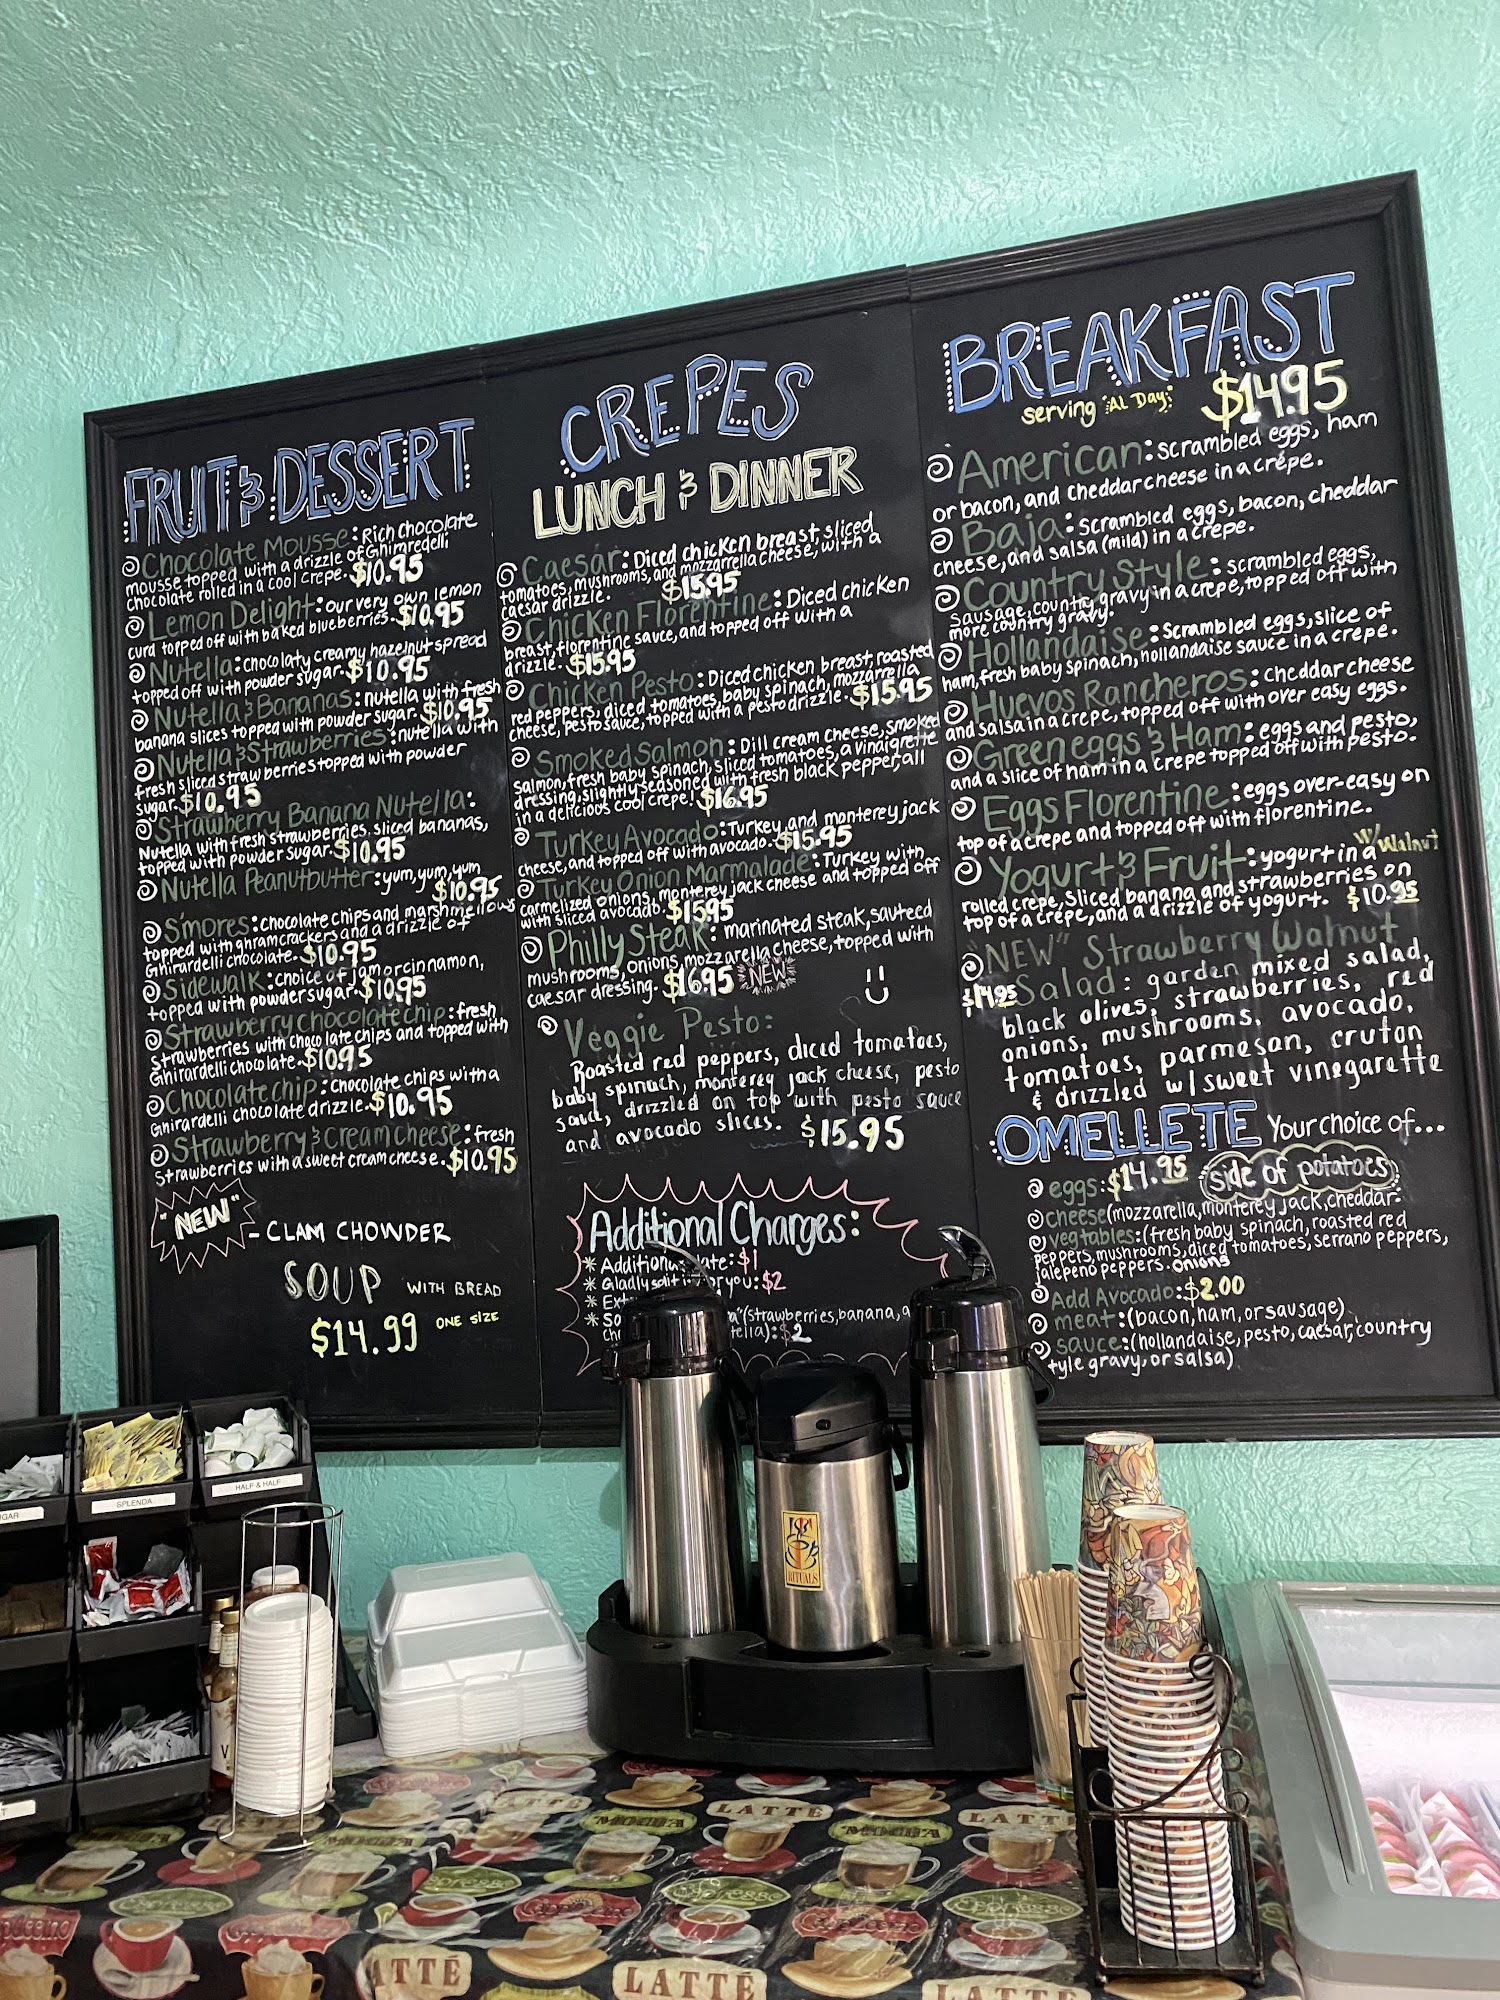 FRUIT & DESSERT
Chocolate Mousse: Rich chocolate
mousse topped with a drizzle of Ghimredelli
chocolate rolled in a cool crepe. $10.95
Lemon Delight: our very own lemon
curd topped off with baked blueberries. $10.95
Nutella: chocolaty creamy hazelnut spread
topped off with powder sugar. $10.95
Nutella & Bananas: nutella with fresh
banana slices topped with powder sugar. $10.95
Nutella & Strawberries: nutella with
fresh sliced strawberries topped with powder
sugar. $10.95
Strawberry Banana Nutella:
Nutella with fresh strawberries, sliced bananas,
topped with powder sugar. $10.95
Nutella Peanutbutter: yum, yum, yum
$10.95
S'mores: chocolate chips and marshmellows
topped with ghramcrackers and a drizzle of
Ghirardelli chocolate. $10.95
Sidewalk: choice of jam or cinnamon,
topped with powder sugar. $10.95
Strawberry chocolate chip: fresh
strawberries with chocolate chips and topped with
Ghirardelli chocolate. $10.95
Chocolate chip: chocolate chips with a
Ghirardelli chocolate drizzle. $10.95
Strawberry & Cream Cheese: fresh
strawberries with a sweet cream cheese. $10.95
"NEW" - CLAM CHOWDER
SOUP WITH BREAD
$14.99 ONE SIZE
CREPES
LUNCH & DINNER
Caesar: Diced chicken breast, sliced
tomatoes, mushrooms, and mozzarrella cheese, with a
caesar drizzle. $15.95
Chicken Florentine: Diced chicken
breast, florentine sauce, and topped off with a
drizzle. $15.95
Chicken Pesto: Diced chicken breast, roasted
red peppers, diced tomatoes, baby spinach, mozzarella
cheese, pesto sauce, topped with a pesto drizzle. $15.95
Smoked Salmon: Dill cream cheese, smoked
salmon, fresh baby spinach, sliced tomatoes, a vinaigrette
dressing, slightly seasoned with fresh black pepper, all
in a delicious cool crepe! $16.95
Turkey Avocado: Turkey and monterey jack
cheese, and topped off with avocado. $15.95
Turkey Onion Marmalade: Turkey with
carmelized onions, monterey jack cheese and topped off
with sliced avocado. $15.95
Philly Steak: marinated steak, sauteed
mushrooms, onions, mozzarella cheese, topped with
caesar dressing. $16.95 NEW
Veggie Pesto:
Roasted red peppers, diced tomatoes,
baby spinach, monterey jack cheese, pesto
sauce, drizzled on top with pesto sauce
and avocado slices. $15.95
Additional Charges:
* Additional ate: $1
* Gladly or you: $2
* Ex
* So a" (strawberries, banana,
ch tella): $2
BREAKFAST
serving AL Day $14.95
American: scrambled eggs, ham
or bacon, and cheddar cheese in a crepe.
Baja: scrambled eggs, bacon, cheddar
cheese, and salsa (mild) in a crepe.
Country Style: scrambled eggs,
sausage, country gravy in a crepe, topped off with
more country gravy.
Hollandaise: scrambled eggs, slice of
ham, fresh baby spinach, hollandaise sauce in a crepe.
Huevos Rancheros: cheddar cheese
and salsa in a crepe, topped off with over easy eggs.
Green eggs & Ham: eggs and pesto,
and a slice of ham in a crepe topped off with pesto.
Eggs Florentine: eggs over-easy on
top of a crepe and topped off with florentine.
Yogurt & Fruit: yogurt in a w/ Walnut
rolled crepe, sliced banana and strawberries on
top of a crepe, and a drizzle of yogurt. $10.95
"NEW" Strawberry Walnut
$14.95 Salad: garden mixed salad,
black olives, strawberries, red
onions, mushrooms, avocado,
tomatoes, parmesan, cruton
& drizzled w/ sweet vinegarette
OMELLETE Your choice of...
eggs: $14.95 side of potatoes
cheese (mozzarella, monterey jack, cheddar.
vegtables: (fresh baby spinach, roasted red
peppers, mushrooms, diced tomatoes, serrano peppers,
jalepeno peppers. onions
Add Avocado: $2.00
meat: (bacon, ham, or sausage)
sauce: (hollandaise, pesto, caesar, country
tyle gravy, or salsa)
GAR
SPLENDA
HALF & HALF
RITUALS
LATTÉ
MOCHA
LATTÉ
Espresso
Cappuccino
Espresso
Cappuccino
ATTÉ
LATTÉ
LATTÉ